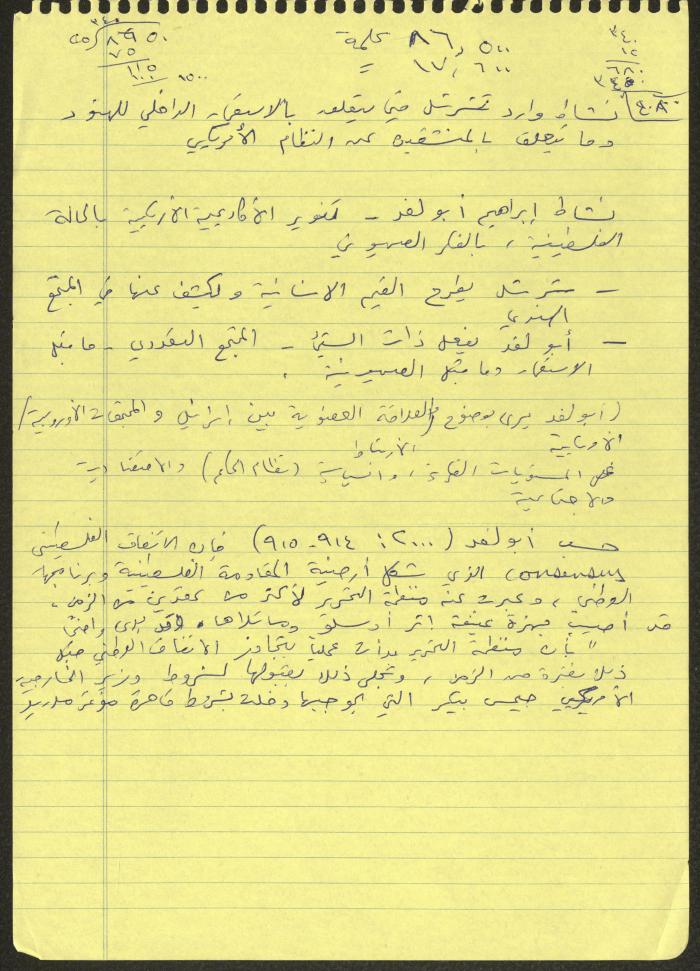 ٣٤٠
٢٥ ٨٩٥٠
٧٥
١١٥
١٥٠٠
٨٦,٥٠٠ كلمة
١٧,٦٠٠
٣٤٠
١٢
٦٨٠
٣٤٠
٤٠٨٠
نشاط وارد تشرتشل فيما يتعلق بالاستعمار الداخلي للهنود
وما يتعلق بالمنشقين عن النظام الأمريكي
نشاط إبراهيم أبو لغد - تنوير الأكاديمية الأمريكية بالحالة
الفلسطينية، بالفكر الصهيوني
- تشرتشل يطرح القيم الانسانية ويكشف عنها في المجتمع
الهندي
- أبو لغد يفعل ذات الشيء - المجتمع - ما قبل
الاستعمار وما قبل الصهيونية.
(أبو لغد يرى بوضوح العلاقة العضوية بين إسرائيل والمجتمعات الأوروبية/
الارتباط
المستويات الفكرية، والسياسية (نظام الحكم) والاقتصادية
والاجتماعية
حسب أبو لغد (٢٠٠٠: ٩١٤-٩١٥) فإن الاتفاق الفلسطيني
consensus الذي شكل أرضية المقاومة الفلسطينية وبرنامجها
الوطني، وعبرت عنه منظمة التحرير لأكثر من عقدين من الزمن،
قد أصيب بهزة عنيفة إثر أوسلو وما تلاها.
"بأن منظمة التحرير بدأت عمليا بتجاوز الاتفاق الوطني قبل
ذلك بفترة من الزمن، وتجلى ذلك بقبولها لشروط وزير الخارجية
الأمريكي جيمس بيكر التي بموجبها دخلت بشروط مؤتمر مدريد